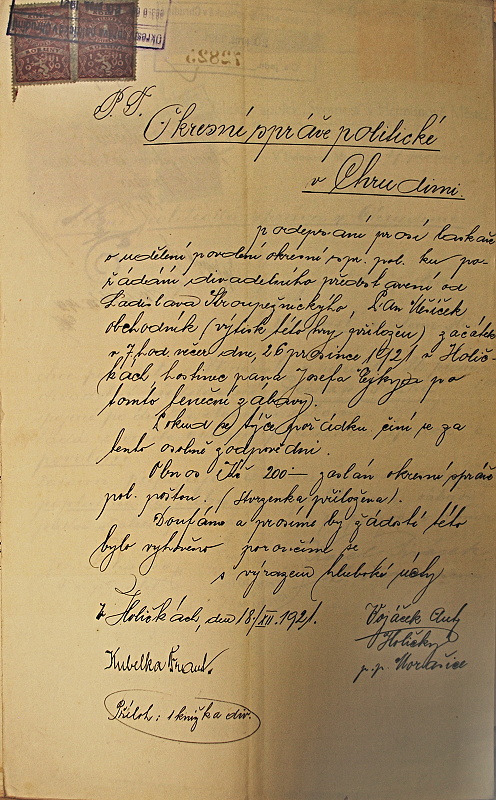 P. T.
Okresní správě politické
v Chrudimi.
podepsaní prosí laskavě
o udělení povolení okresní spr. pol. ku po-
řádání divadelního představení od
Ladislava Stroupežnického, Pan Měsíček
obchodník (výtisk této hry přiložen) začátek
v 7 hod. večer dne, 26 prosince 1921 v Holič-
kách, hostinec pana Josefa po
tomto taneční zábavy).
Pokud se týče pořádku, činí se za
tento osobně zodpovědni.
Obnos Kč 200·— zaslán okresní správě
pol. poštou. (Stvrzenka přiložena).
Doufáme a prosíme by žádosti této
bylo vyhověno poroučíme se
s výrazem hluboké úcty
V Holičkách, dne 18./XII. 1921.
Vojáček Ant.
Holičky
p. p. Morašice
Kubelka Frant.
Příloh: 1 knížka div.
72825